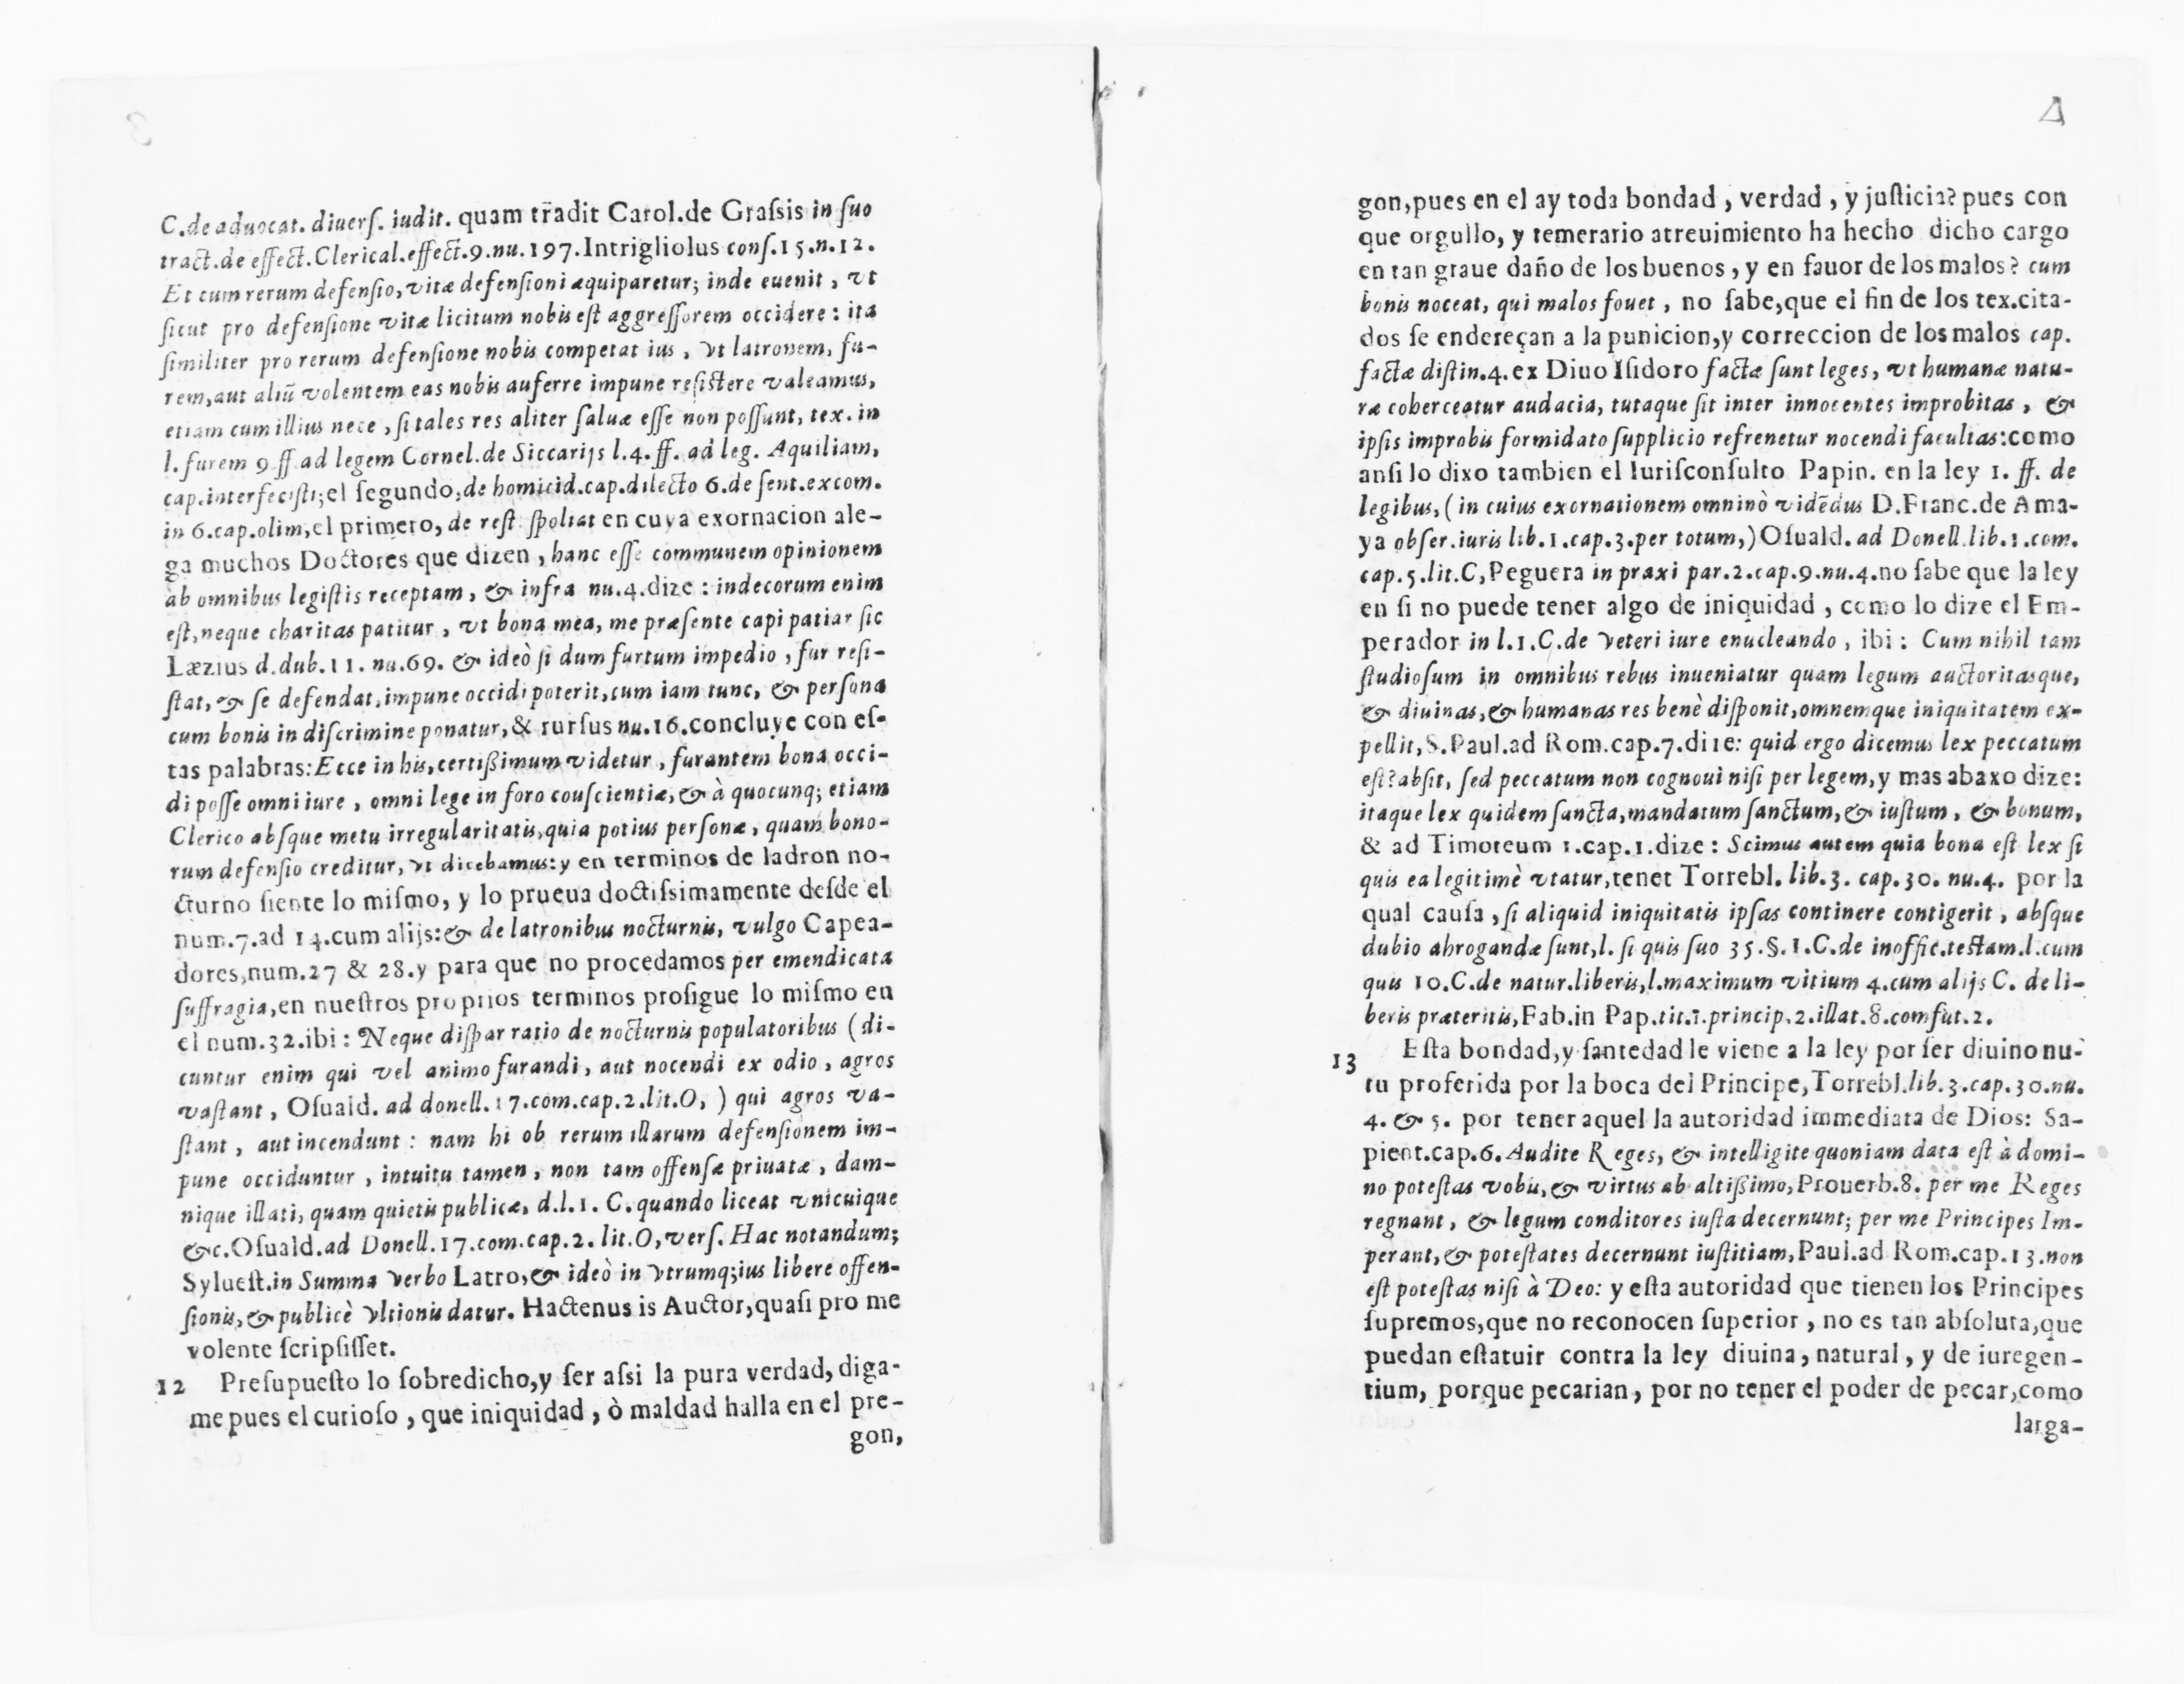 C.de aduocat. diuerſ. iudit. quam tr̃adit Carol.de Graſsis in ſuo
tract.de effect.Clerical.effect.9.nu.197.Intrigliolus conſ.15.n.12.
Et cum rerum defenſio, vitæ defenſioni æquiparetur; inde euenit, vt
ſicut pro defenſione vitæ licitum nobis eſt aggreſſorem occidere: ita
ſimiliter pro rerum defenſione nobis competat ius, vt latronem, fu-
rem,aut aliũ volentem eas nobis auferre impune reſiſtere valeamus,
etiam cum illius nece, ſi tales res aliter ſaluæ eſſe non poſſunt, tex. in
l. furem 9 ff ad legem Cornel.de Siccarijs l.4.ff. ad leg. Aquiliam,
cap.interfeciſti;el ſegundo,de homicid.cap.dilecto 6.de ſent.excom.
in 6.cap.olim,el primero, de reſt. ſpoliat en cuya exornacion ale-
ga muchos Doctores que dizen, hanc eſſe communem opinionem
ab omnibus legiſtis receptam, & infra nu.4.dize: indecorum enim
eſt,neque charitas patitur, vt bona mea, me præſente capi patiar ſic
Læzius d.dub.11. nu.69. & ideò ſi dum furtum impedio, fur reſi-
ſtat, & ſe defendat,impune occidi poterit,cum iam tunc, & perſona
cum bonis in diſcrimine ponatur, & rurſus nu.16.concluye con eſ-
tas palabras:Ecce in his,certißimum videtur, furantem bona occi-
di poſſe omni iure, omni lege in foro couſcientiæ,& à quocunq; etiam
Clerico abſque metu irregularitatis,quia potius perſonæ, quam bono-
rum defenſio creditur, vt dicebamus:y en terminos de ladron no-
cturno ſiente lo miſmo, y lo prueua doctiſsimamente deſde el
num.7.ad 14.cum alijs:& de latronibus nocturnis, vulgo Capea-
dores,num.27 & 28.y para que no procedamos per emendicata
ſuffragia,en nueſtros proprios terminos proſigue lo miſmo en
el num.32.ibi: Neque diſpar ratio de nocturnis populatoribus (di-
cuntur enim qui vel animo furandi, aut nocendi ex odio, agros
vaſtant, Oſuald. ad donell.17.com.cap.2.lit.O, ) qui agros va-
ſtant, aut incendunt: nam hi ob rerum illarum defenſionem im-
pune occiduntur, intuitu tamen, non tam offenſæ priuatæ, dam-
nique illati, quam quietis publicæ, d.l.1. C. quando liceat vnicuique
&c.Oſuald.ad Donell.17.com.cap.2. lit.O, verſ. Hac notandum;
Sylueſt.in Summa verbo Latro,& ideò in vtrumq;ius libere offen-
ſionis,& publicè vltionis datur. Hactenus is Auctor,quaſi pro me
volente ſcripſiſſet.
12 Preſupueſto lo ſobredicho,y ſer aſsi la pura verdad, diga-
me pues el curioſo, que iniquidad, ò maldad halla en el pre-
gon,
4
gon,pues en el ay toda bondad, verdad, y juſticia? pues con
que orgullo, y temerario atreuimiento ha hecho dicho cargo
en tan graue daño de los buenos, y en fauor de los malos? cum
bonis noceat, qui malos fouet, no ſabe,que el fin de los tex.cita-
dos ſe endereçan a la punicion,y correccion de los malos cap.
factæ diſtin.4.ex Diuo Iſidoro factæ ſunt leges, vt humanæ natu-
ræ coberceatur audacia, tutaque ſit inter innocentes improbitas, &
ipſis improbis formidato ſupplicio refrenetur nocendi facultas:como
anſi lo dixo tambien el Iuriſconſulto Papin. en la ley 1. ff. de
legibus, (in cuius exornationem omninò vidẽdus D.Franc.de Ama-
ya obſer.iuris lib.1.cap.3.per totum,)Oſuald. ad Donell.lib.1.com.
cap.5.lit.C,Peguera in praxi par.2.cap.9.nu.4.no ſabe que la ley
en ſi no puede tener algo de iniquidad, como lo dize el Em-
perador in l.1.C.de veteri iure enucleando, ibi: Cum nihil tam
ſtudioſum in omnibus rebus inueniatur quam legum auctoritasque,
& diuinas,& humanas res benè diſponit,omnemque iniquitatem ex-
pellit,S.Paul.ad Rom.cap.7.dize: quid ergo dicemus lex peccatum
eſt?abſit, ſed peccatum non cognoui niſi per legem,y mas abaxo dize:
itaque lex quidem ſancta,mandatum ſanctum,& iuſtum, & bonum,
& ad Timoteum 1.cap.1.dize: Scimus autem quia bona eſt lex ſi
quis ea legitimè vtatur,tenet Torrebl. lib.3. cap.30. nu.4. por la
qual cauſa, ſi aliquid iniquitatis ipſas continere contigerit, abſque
dubio abrogandæ ſunt,l. ſi quis ſuo 35.§.1.C.de inoffic.teſtam.l.cum
quis 10.C.de natur.liberis,l.maximum vitium 4.cum alijs C. de li-
beris præteritis,Fab.in Pap.tit.1.princip.2.illat.8.comfut.2.
13 Eſta bondad,y ſantedad le viene a la ley por ſer diuino nu-
tu proferida por la boca del Principe,Torrebl.lib.3.cap.30.nu.
4.& 5. por tener aquel la autoridad immediata de Dios: Sa-
pient.cap.6.Audite Reges, & intelligite quoniam data eſt à domi-
no poteſtas vobis,& virtus ab altißimo,Prouerb.8. per me Reges
regnant, & legum conditores iuſta decernunt; per me Principes Im-
perant,& poteſtates decernunt iuſtitiam,Paul.ad Rom.cap.13.non
eſt poteſtas niſi à Deo: y eſta autoridad que tienen los Principes
ſupremos,que no reconocen ſuperior, no es tan abſoluta,que
puedan eſtatuir contra la ley diuina, natural, y de iuregen-
tium, porque pecarian, por no tener el poder de pecar,como
larga-